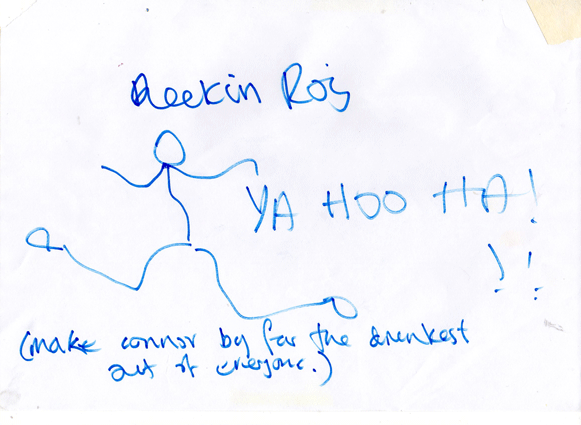 Reekin Rois
YA HOO HA!
! !
(make connor by far the drunkest
out of everyone.)